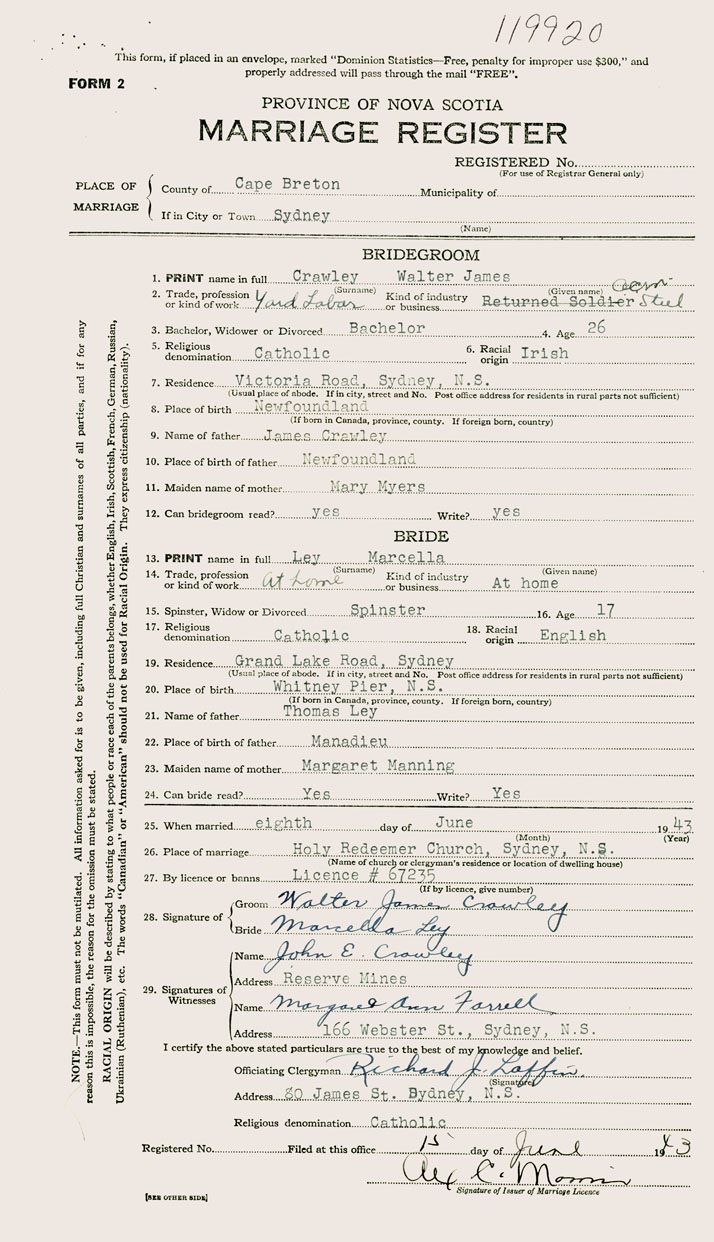 119920
This form, if placed in an envelope, marked "Dominion Statistics—Free, penalty for improper use $300," and
properly addressed will pass through the mail "FREE".
FORM 2
PROVINCE OF NOVA SCOTIA
MARRIAGE REGISTER
REGISTERED No.
(For use of Registrar General only)
PLACE OF MARRIAGE
County of Cape Breton Municipality of
If in City or Town Sydney
(Name)
BRIDEGROOM
1. PRINT name in full Crawley Walter James
(Surname) (Given name)
2. Trade, profession or kind of work Yard Labor Kind of industry or business Returned Soldier Steel
3. Bachelor, Widower or Divorced Bachelor 4. Age 26
5. Religious denomination Catholic 6. Racial origin Irish
7. Residence Victoria Road, Sydney, N.S.
(Usual place of abode. If in city, street and No. Post office address for residents in rural parts not sufficient)
8. Place of birth Newfoundland
(If born in Canada, province, county. If foreign born, country)
9. Name of father James Crawley
10. Place of birth of father Newfoundland
11. Maiden name of mother Mary Myers
12. Can bridegroom read? yes Write? yes
BRIDE
13. PRINT name in full Ley Marcella
(Surname) (Given name)
14. Trade, profession or kind of work At home Kind of industry or business At home
15. Spinster, Widow or Divorced Spinster 16. Age 17
17. Religious denomination Catholic 18. Racial origin English
19. Residence Grand Lake Road, Sydney
(Usual place of abode. If in city, street and No. Post office address for residents in rural parts not sufficient)
20. Place of birth Whitney Pier, N.S.
(If born in Canada, province, county. If foreign born, country)
21. Name of father Thomas Ley
22. Place of birth of father Manadieu
23. Maiden name of mother Margaret Manning
24. Can bride read? Yes Write? Yes
25. When married eighth day of June 1943
(Month) (Year)
26. Place of marriage Holy Redeemer Church, Sydney, N.S.
(Name of church or clergyman's residence or location of dwelling house)
27. By licence or banns Licence # 67235
(If by licence, give number)
28. Signature of
Groom Walter James Crawley
Bride Marcella Ley
29. Signatures of Witnesses
Name John E. Crawley
Address Reserve Mines
Name Margaret Ann Farrell
Address 166 Webster St., Sydney, N.S.
I certify the above stated particulars are true to the best of my knowledge and belief.
Officiating Clergyman Richard J. Laffin
(Signature)
Address 80 James St. Bydney, N.S.
Religious denomination Catholic
Registered No. Filed at this office 15 day of June 1943
Signature of Issuer of Marriage Licence
[SEE OTHER SIDE]
NOTE.—This form must not be mutilated. All information asked for is to be given, including full Christian and surnames of all parties, and if for any
reason this is impossible, the reason for the omission must be stated.
RACIAL ORIGIN will be described by stating to what people or race each of the parents belongs, whether English, Irish, Scottish, French, German, Russian,
Ukrainian (Ruthenian), etc. The words "Canadian" or "American" should not be used for Racial Origin. They express citizenship (nationality).